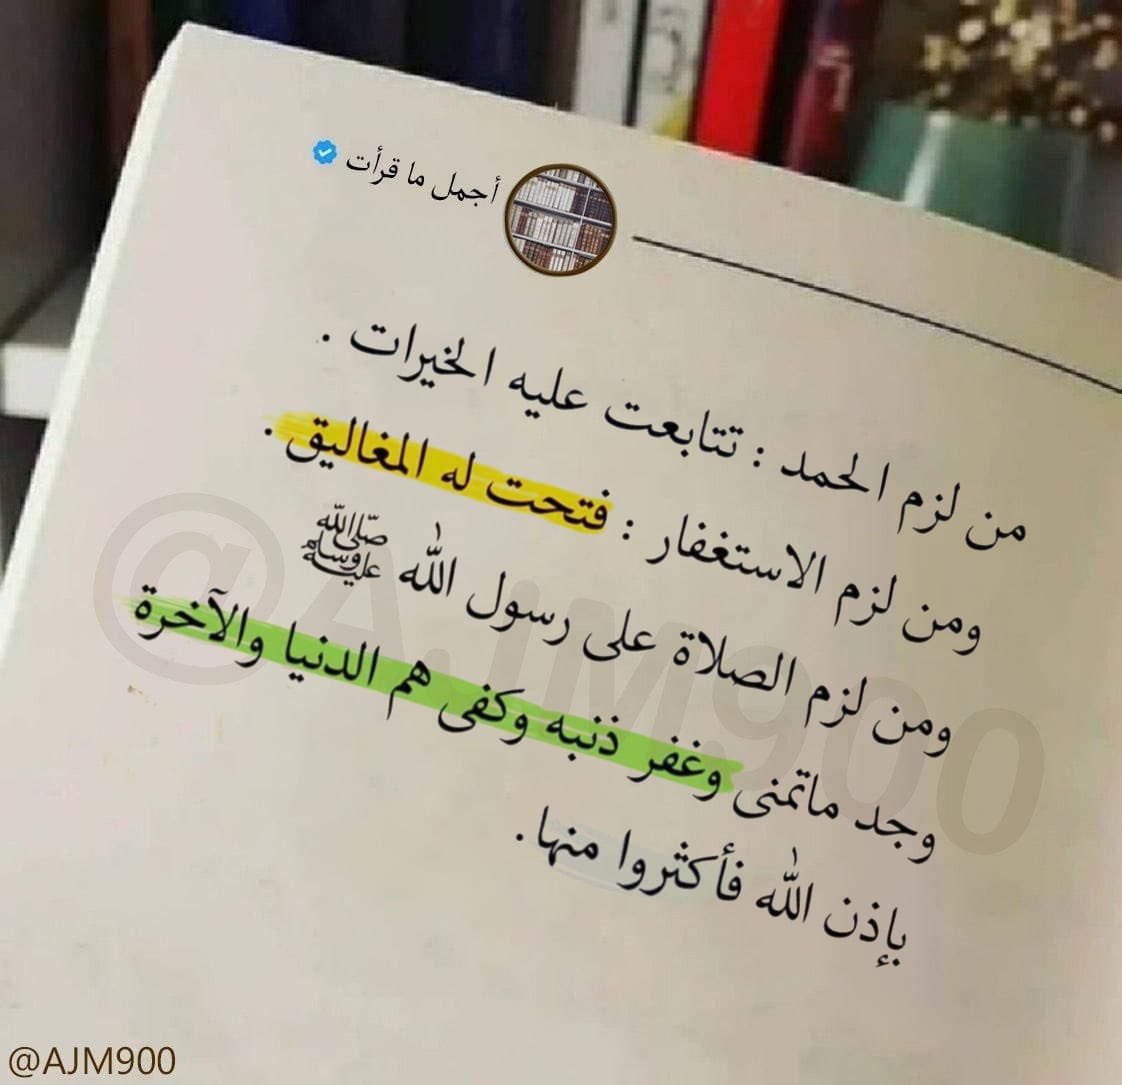 أجمل ما قرأت
من لزم الحمد : تتابعت عليه الخيرات .
ومن لزم الاستغفار : فتحت له المغاليق .
ومن لزم الصلاة على رسول الله ﷺ
وجد ماتمنى وغفر ذنبه وكفى هم الدنيا والآخرة
بإذن الله فأكثروا منها .
@AJM900
@AJM900